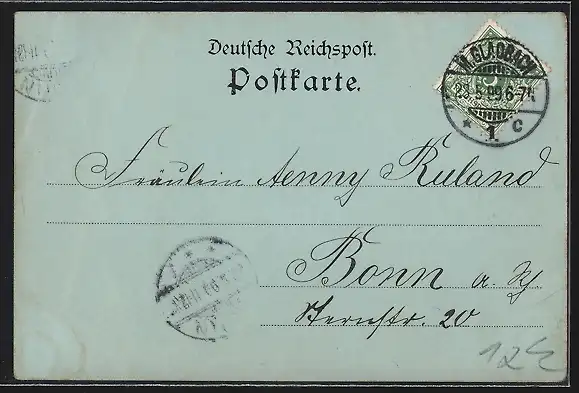 Deutsche Reichspost.
Postkarte.
M. GLADBACH
23 5 99 6-7N
* 1. c
Fräulein Aenny Ruland
Bonn a. Rh
Sternstr. 20